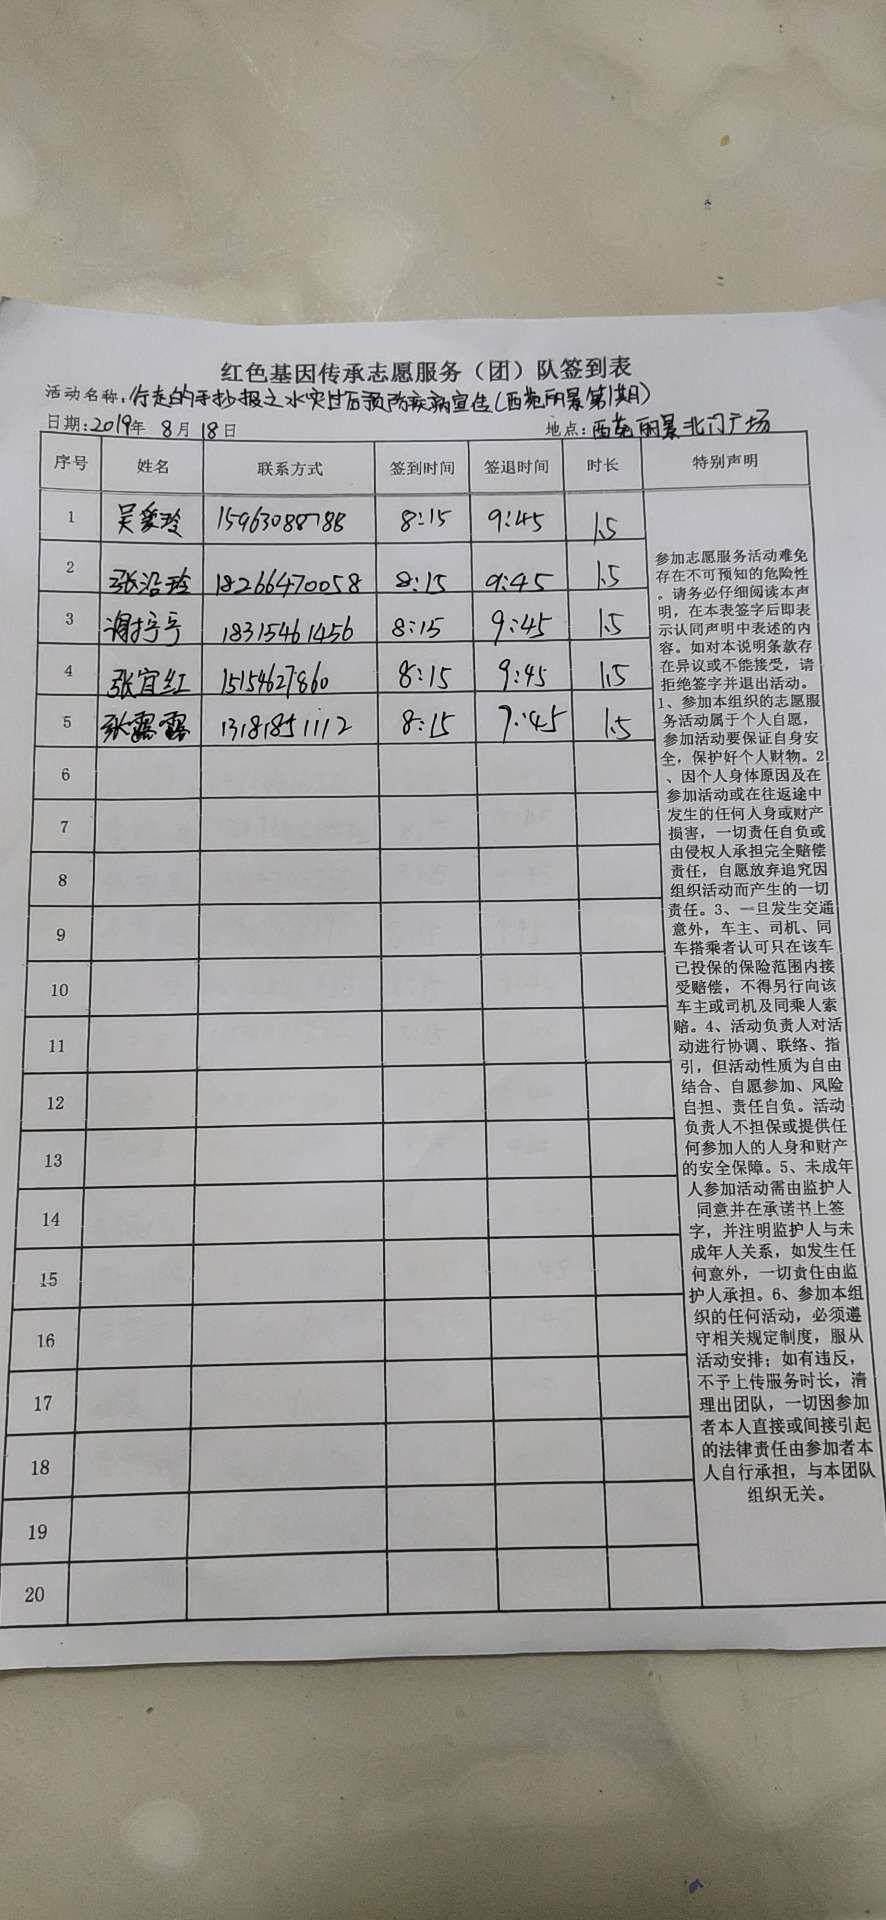 红色基因传承志愿服务（团）队签到表
活动名称：行走的手抄报之水灾过后预防疾病宣传（西苑丽景第1期）
日期：2019年 8月 18日 地点：西苑丽景北门广场
序号 姓名 联系方式 签到时间 签退时间 时长 特别声明
1 吴爱玲 15963088788 8:15 9:45 1.5
2 张沿玲 18266470058 8:15 9:45 1.5
3 谢婷婷 18315461456 8:15 9:45 1.5
4 张宜红 15154627860 8:15 9:45 1.5
5 张露露 13181851112 8:15 9:45 1.5
6
7
8
9
10
11
12
13
14
15
16
17
18
19
20
参加志愿服务活动难免
存在不可预知的危险性
。请务必仔细阅读本声
明，在本表签字后即表
示认同声明中表述的内
容。如对本说明条款存
在异议或不能接受，请
拒绝签字并退出活动。
1、参加本组织的志愿服
务活动属于个人自愿，
参加活动要保证自身安
全，保护好个人财物。2
、因个人身体原因及在
参加活动或在往返途中
发生的任何人身或财产
损害，一切责任自负或
由侵权人承担完全赔偿
责任，自愿放弃追究因
组织活动而产生的一切
责任。3、一旦发生交通
意外，车主、司机、同
车搭乘者认可只在该车
已投保的保险范围内接
受赔偿，不得另行向该
车主或司机及同乘人索
赔。4、活动负责人对活
动进行协调、联络、指
引，但活动性质为自由
结合、自愿参加、风险
自担、责任自负。活动
负责人不担保或提供任
何参加人的人身和财产
的安全保障。5、未成年
人参加活动需由监护人
同意并在承诺书上签
字，并注明监护人与未
成年人关系，如发生任
何意外，一切责任由监
护人承担。6、参加本组
织的任何活动，必须遵
守相关规定制度，服从
活动安排；如有违反，
不予上传服务时长，清
理出团队，一切因参加
者本人直接或间接引起
的法律责任由参加者本
人自行承担，与本团队
组织无关。